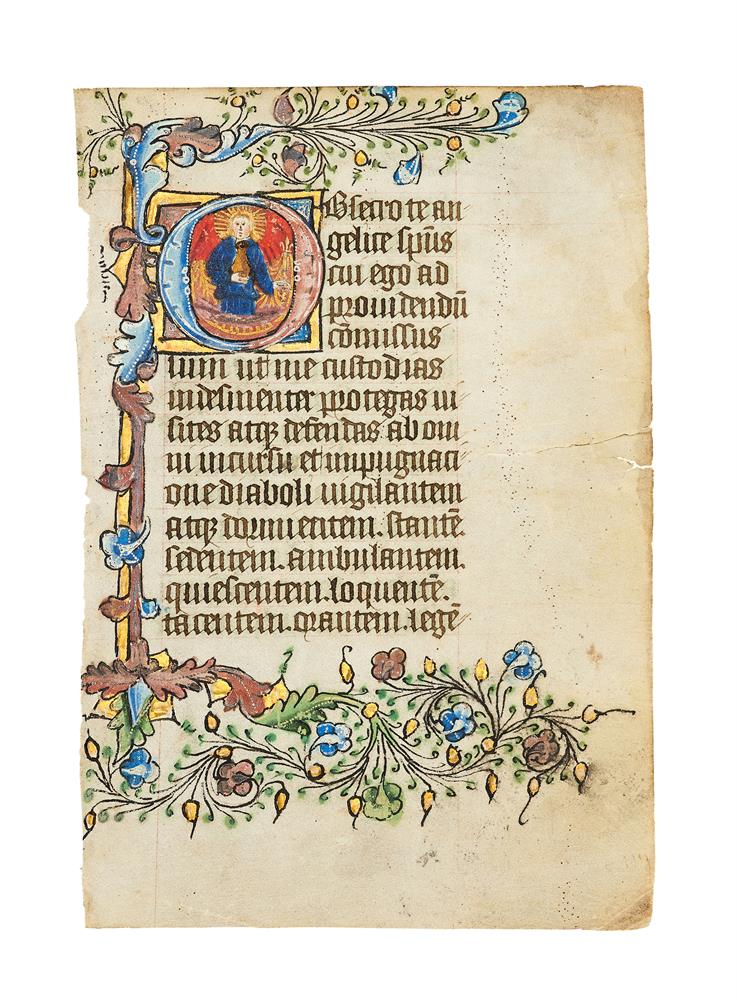 OBsecro te an
gelice spūs
cui ego ad
prouidendū
cōmissus
sum ut me custodias
indesinenter protegas ui
sites atqꝫ defendas ab om
ni incursu et impugnaci
one diaboli uigilantem
atqꝫ dormientem. stantē.
sedentem. ambulantem.
quiescentem. loquentē.
tacentem. orantem. legē